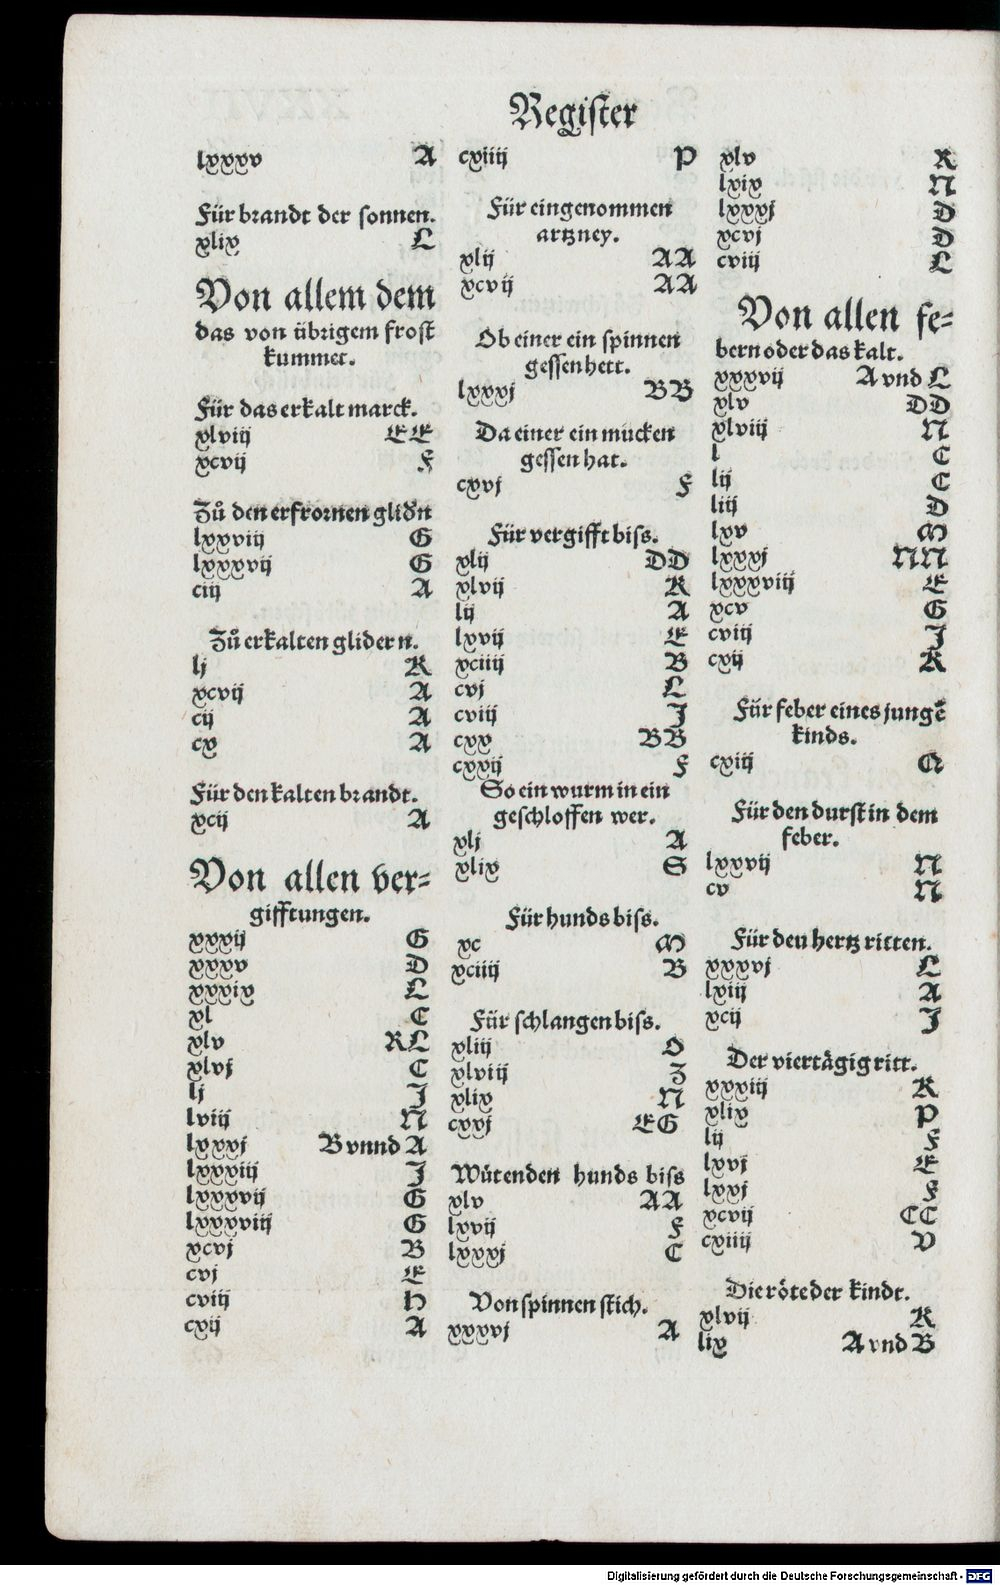 Register
lxxxv A
Für brandt der sonnen.
xlix L
Von allem dem
das von übrigem frost
kummet.
Für das erkalt marck.
xlviij EE
xcvij F
Zů den erfrornen glidn̄
lxxviij G
lxxxvij G
ciij A
Zů erkalten glidern.
lj K
xcvij A
cij A
cx A
Für den kalten brandt.
xcij A
Von allen ver=
gifftungen.
xxxij G
xxxv D
xxxix L
xl C
xlv RL
xlvj C
lj J
lviij N
lxxxj B vnnd A
lxxxiij J
lxxxvij G
lxxxviij G
xcvj B
cvj E
cviij H
cxij A
cxiiij P
Für eingenommen
artzney.
xlij AA
xcvij AA
Ob einer ein spinnen
gessen hett.
lxxxj BB
Da einer ein mucken
gessen hat.
cxvj F
Für vergifft biss.
xlij DD
xlvij K
lij A
lxvij E
xciiij B
cvj L
cviij J
cxx BB
cxxij F
So ein wurm in ein
geschloffen wer.
xlj A
xlix S
Für hunds biss.
xc M
xciiij B
Für schlangen biss.
xliij O
xlviij Z
xlix N
cxxj EG
Wůtenden hunds biss
xlv AA
lxvij F
lxxxj C
Von spinnen stich.
xxxvj A
xlv R
lxix N
lxxxj D
xcvj D
cviij L
Von allen fe=
bern oder das kalt.
xxxvij A vnd L
xlv DD
xlviij N
l C
lij C
liij D
lxv M
lxxxj NN
lxxxviij E
xcv G
cviij J
cxij K
Für feber eines jungē
kinds.
cxiij Q
Für den durst in dem
feber.
lxxvij N
cv N
Für den hertz ritten.
xxxvj L
lxiij A
xcij J
Der viertägig ritt.
xxxiij K
xlix P
lij F
lxvj E
lxxj F
xcvij CC
cxiiij V
Die röte der kindt.
xlvij K
lix A vnd B
Digitalisierung gefördert durch die Deutsche Forschungsgemeinschaft - DFG